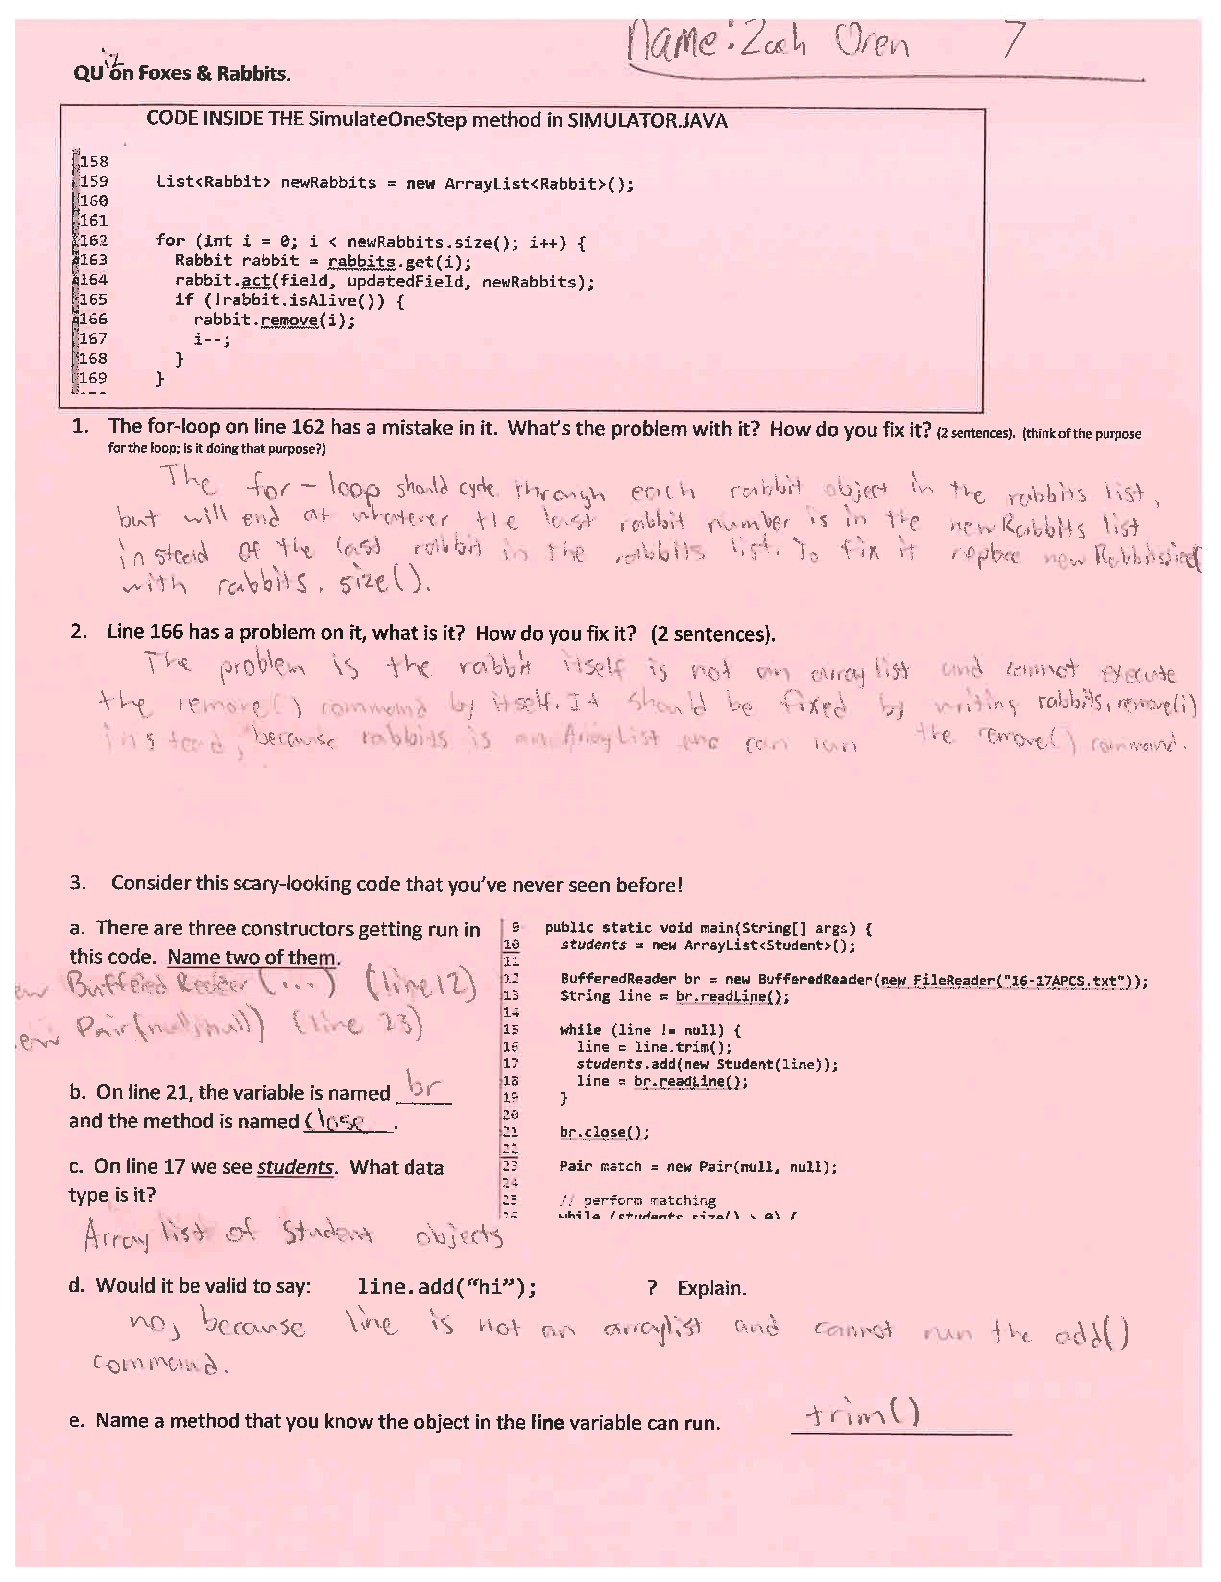 Name: Zach Oren 7
QUiz on Foxes & Rabbits.
CODE INSIDE THE SimulateOneStep method in SIMULATOR.JAVA
158
159 List<Rabbit> newRabbits = new ArrayList<Rabbit>();
160
161
162 for (int i = 0; i < newRabbits.size(); i++) {
163 Rabbit rabbit = rabbits.get(i);
164 rabbit.act(field, updatedField, newRabbits);
165 if (!rabbit.isAlive()) {
166 rabbit.remove(i);
167 i--;
168 }
169 }
1. The for-loop on line 162 has a mistake in it. What's the problem with it? How do you fix it? (2 sentences). (think of the purpose
for the loop; is it doing that purpose?)
The for-loop should cycle through each rabbit object in the rabbits list,
but will end at whatever the last rabbit number is in the newRabbits list
instead of the last rabbit in the rabbits list. To fix it replace
with rabbits.size().
2. Line 166 has a problem on it, what is it? How do you fix it? (2 sentences).
The problem is the rabbit itself is not an arraylist and cannot execute
the remove() command by itself. It should be fixed by writing rabbits.remove(i)
instead, because rabbits is an ArrayList and can run the remove() command.
3. Consider this scary-looking code that you've never seen before!
a. There are three constructors getting run in
this code. Name two of them.
new Buffered Reader (...) (line 12)
new Pair(null, null) (line 23)
b. On line 21, the variable is named br
and the method is named Close.
c. On line 17 we see students. What data
type is it?
Array list of Student objects
9 public static void main(String[] args) {
10 students = new ArrayList<Student>();
11
12 BufferedReader br = new BufferedReader(new FileReader("16-17APCS.txt"));
13 String line = br.readLine();
14
15 while (line != null) {
16 line = line.trim();
17 students.add(new Student(line));
18 line = br.readLine();
19 }
20
21 br.close();
22
23 Pair match = new Pair(null, null);
24
25 // perform matching
26 while (students.size() > 0) {
d. Would it be valid to say: line.add("hi"); ? Explain.
no, because line is not an arraylist and cannot run the add()
command.
e. Name a method that you know the object in the line variable can run. trim()